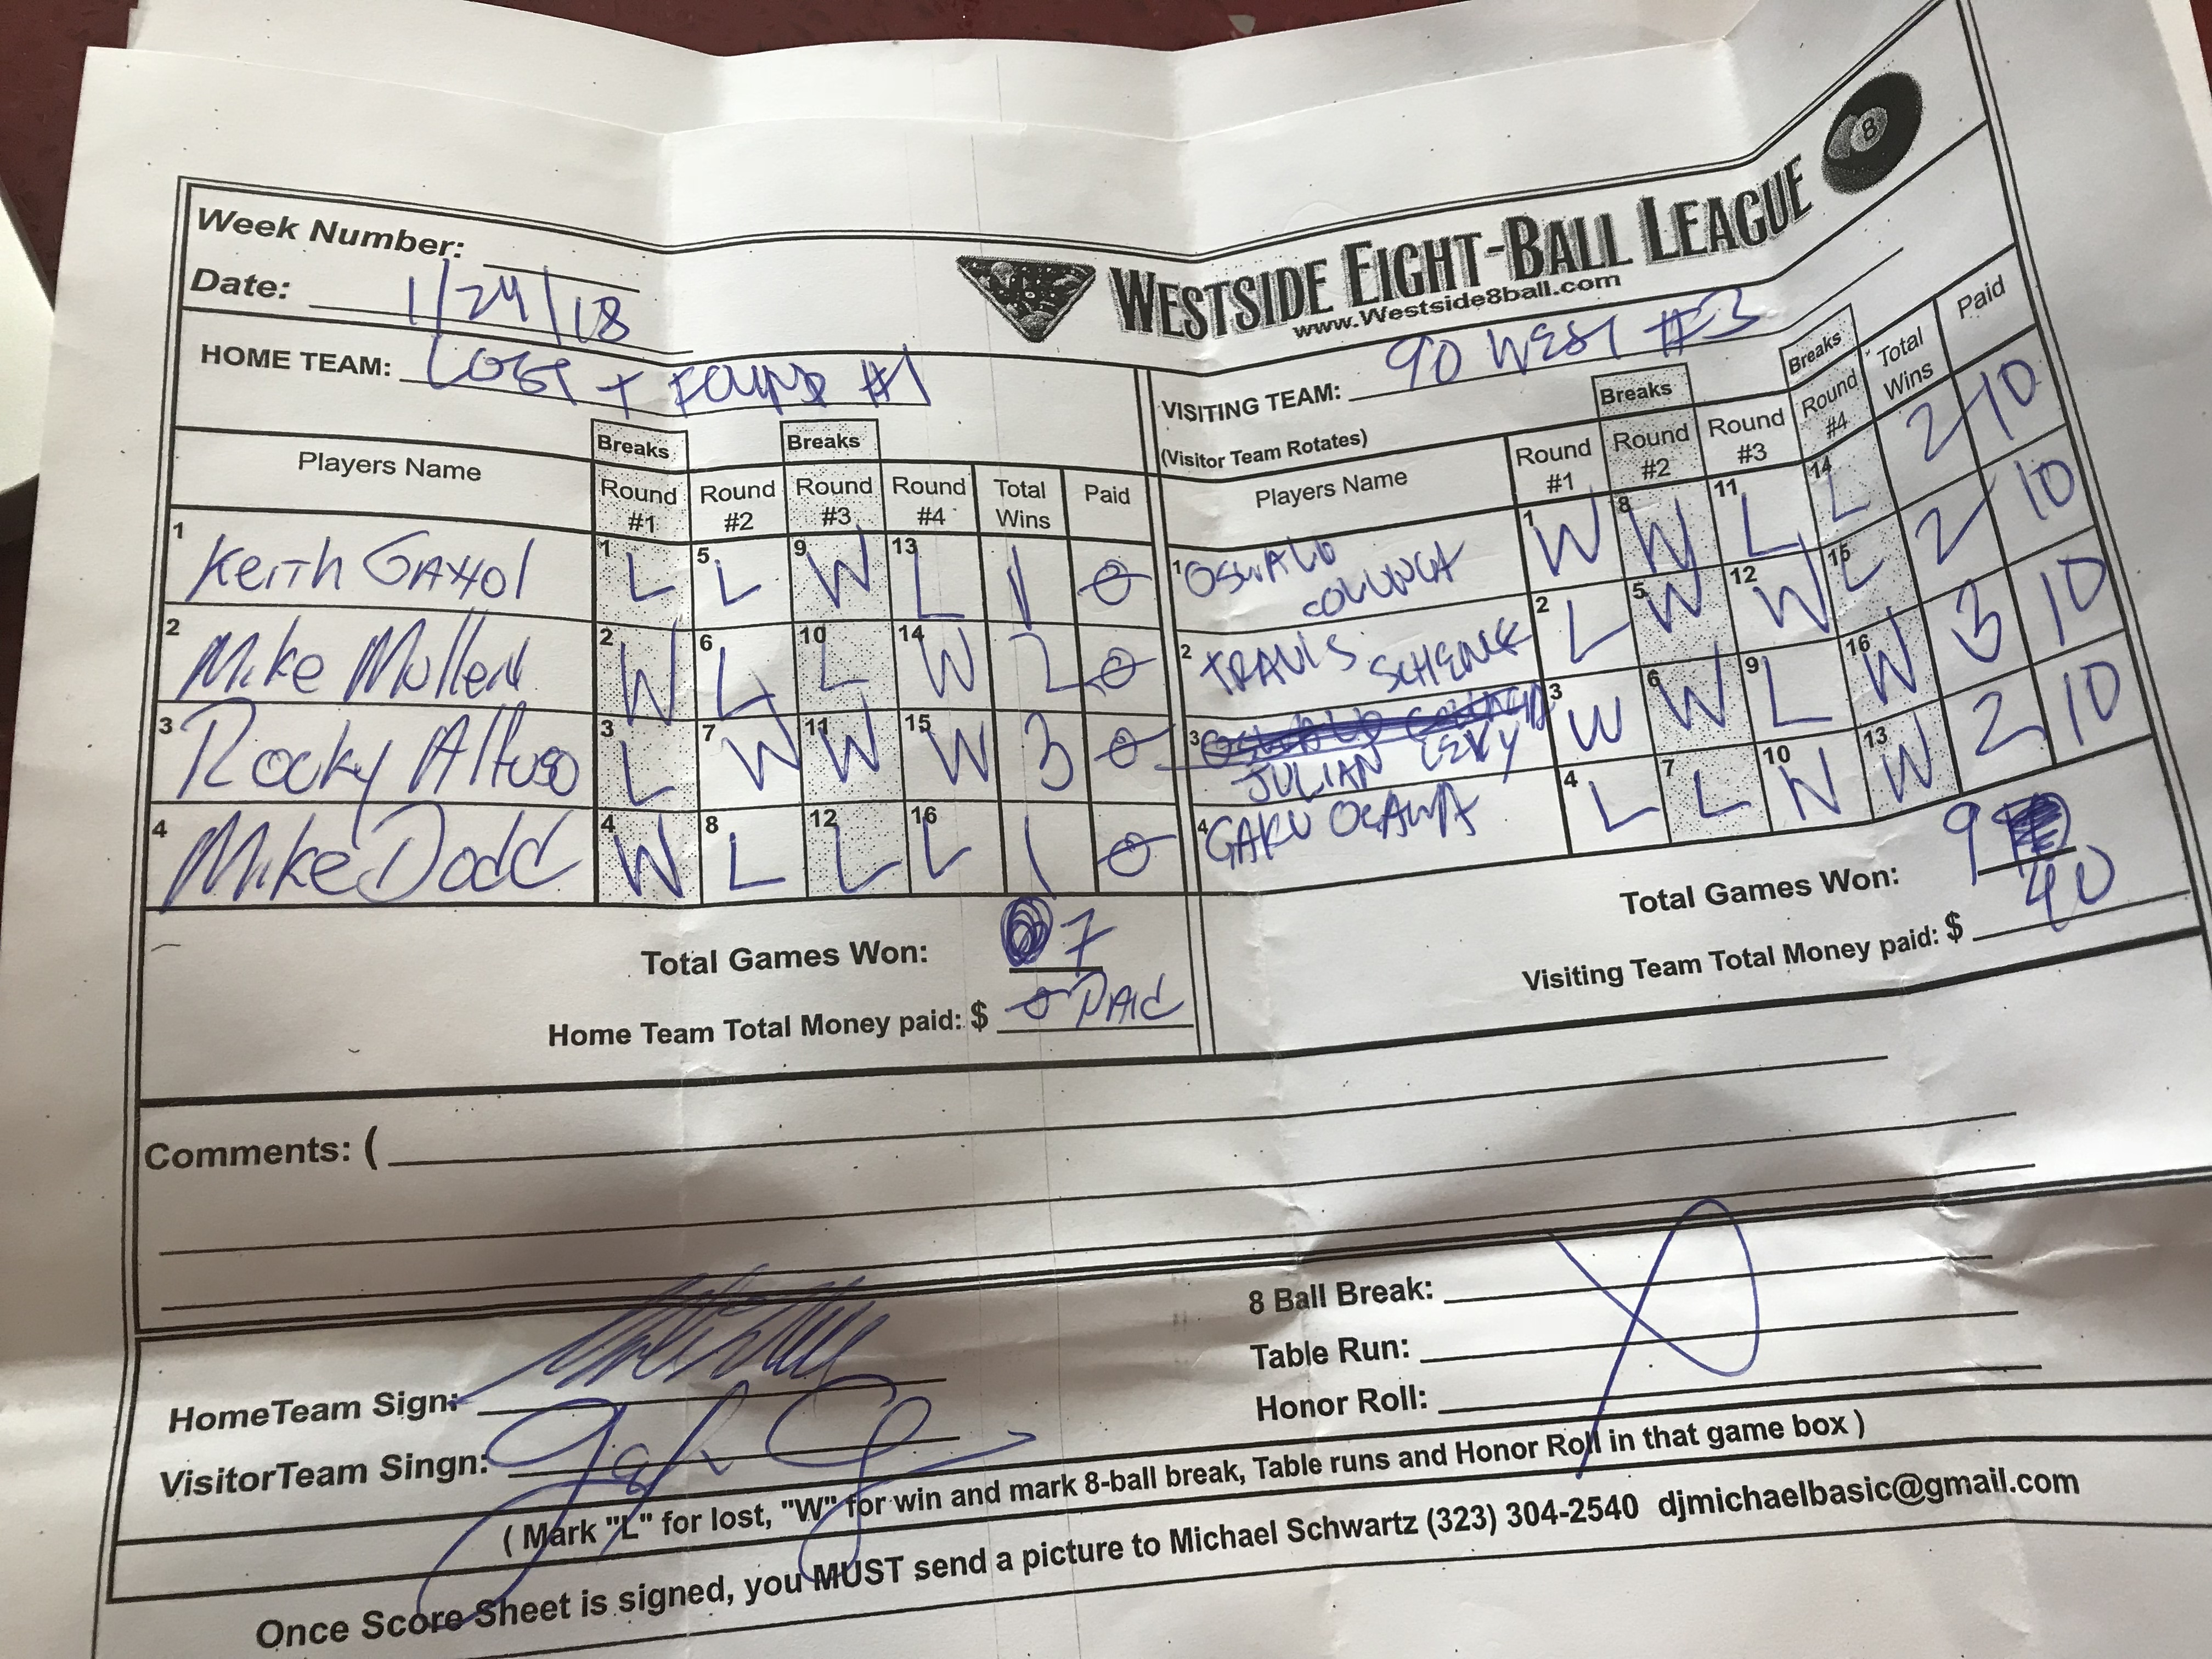 Week Number:
Date: 1/24/18
WESTSIDE EIGHT-BALL LEAGUE
8
www.Westside8ball.com
HOME TEAM: LOST + FOUND #1
VISITING TEAM: 90 WEST #3
(Visitor Team Rotates)
Breaks Breaks
Players Name Round #1 Round #2 Round #3 Round #4 Total Wins Paid
1 Keith 1 L 5 L 9 W 13 L 1 0
2 Mike Mullen 2 W 6 L 10 L 14 W 2 0
3 Rocky 3 L 7 W 11 W 15 W 3 0
4 Mike Dodd 4 W 8 L 12 L 16 L 1 0
Total Games Won: 7
Home Team Total Money paid: $ 0 PAID
Breaks Breaks
Players Name Round #1 Round #2 Round #3 Round #4 Total Wins Paid
1 OSWALD 1 W 8 W 11 L 14 L 2 10
2 TRAVIS SCHENCK 2 L 5 W 12 W 15 L 2 10
3 JULIAN LEVY 3 W 6 W 9 L 16 W 3 10
4 GAKU OGAWA 4 L 7 L 10 W 13 W 2 10
Total Games Won: 9
Visiting Team Total Money paid: $ 40
Comments: (
HomeTeam Sign:
VisitorTeam Singn:
8 Ball Break:
Table Run:
Honor Roll:
( Mark "L" for lost, "W" for win and mark 8-ball break, Table runs and Honor Roll in that game box )
Once Score Sheet is signed, you MUST send a picture to Michael Schwartz (323) 304-2540 djmichaelbasic@gmail.com